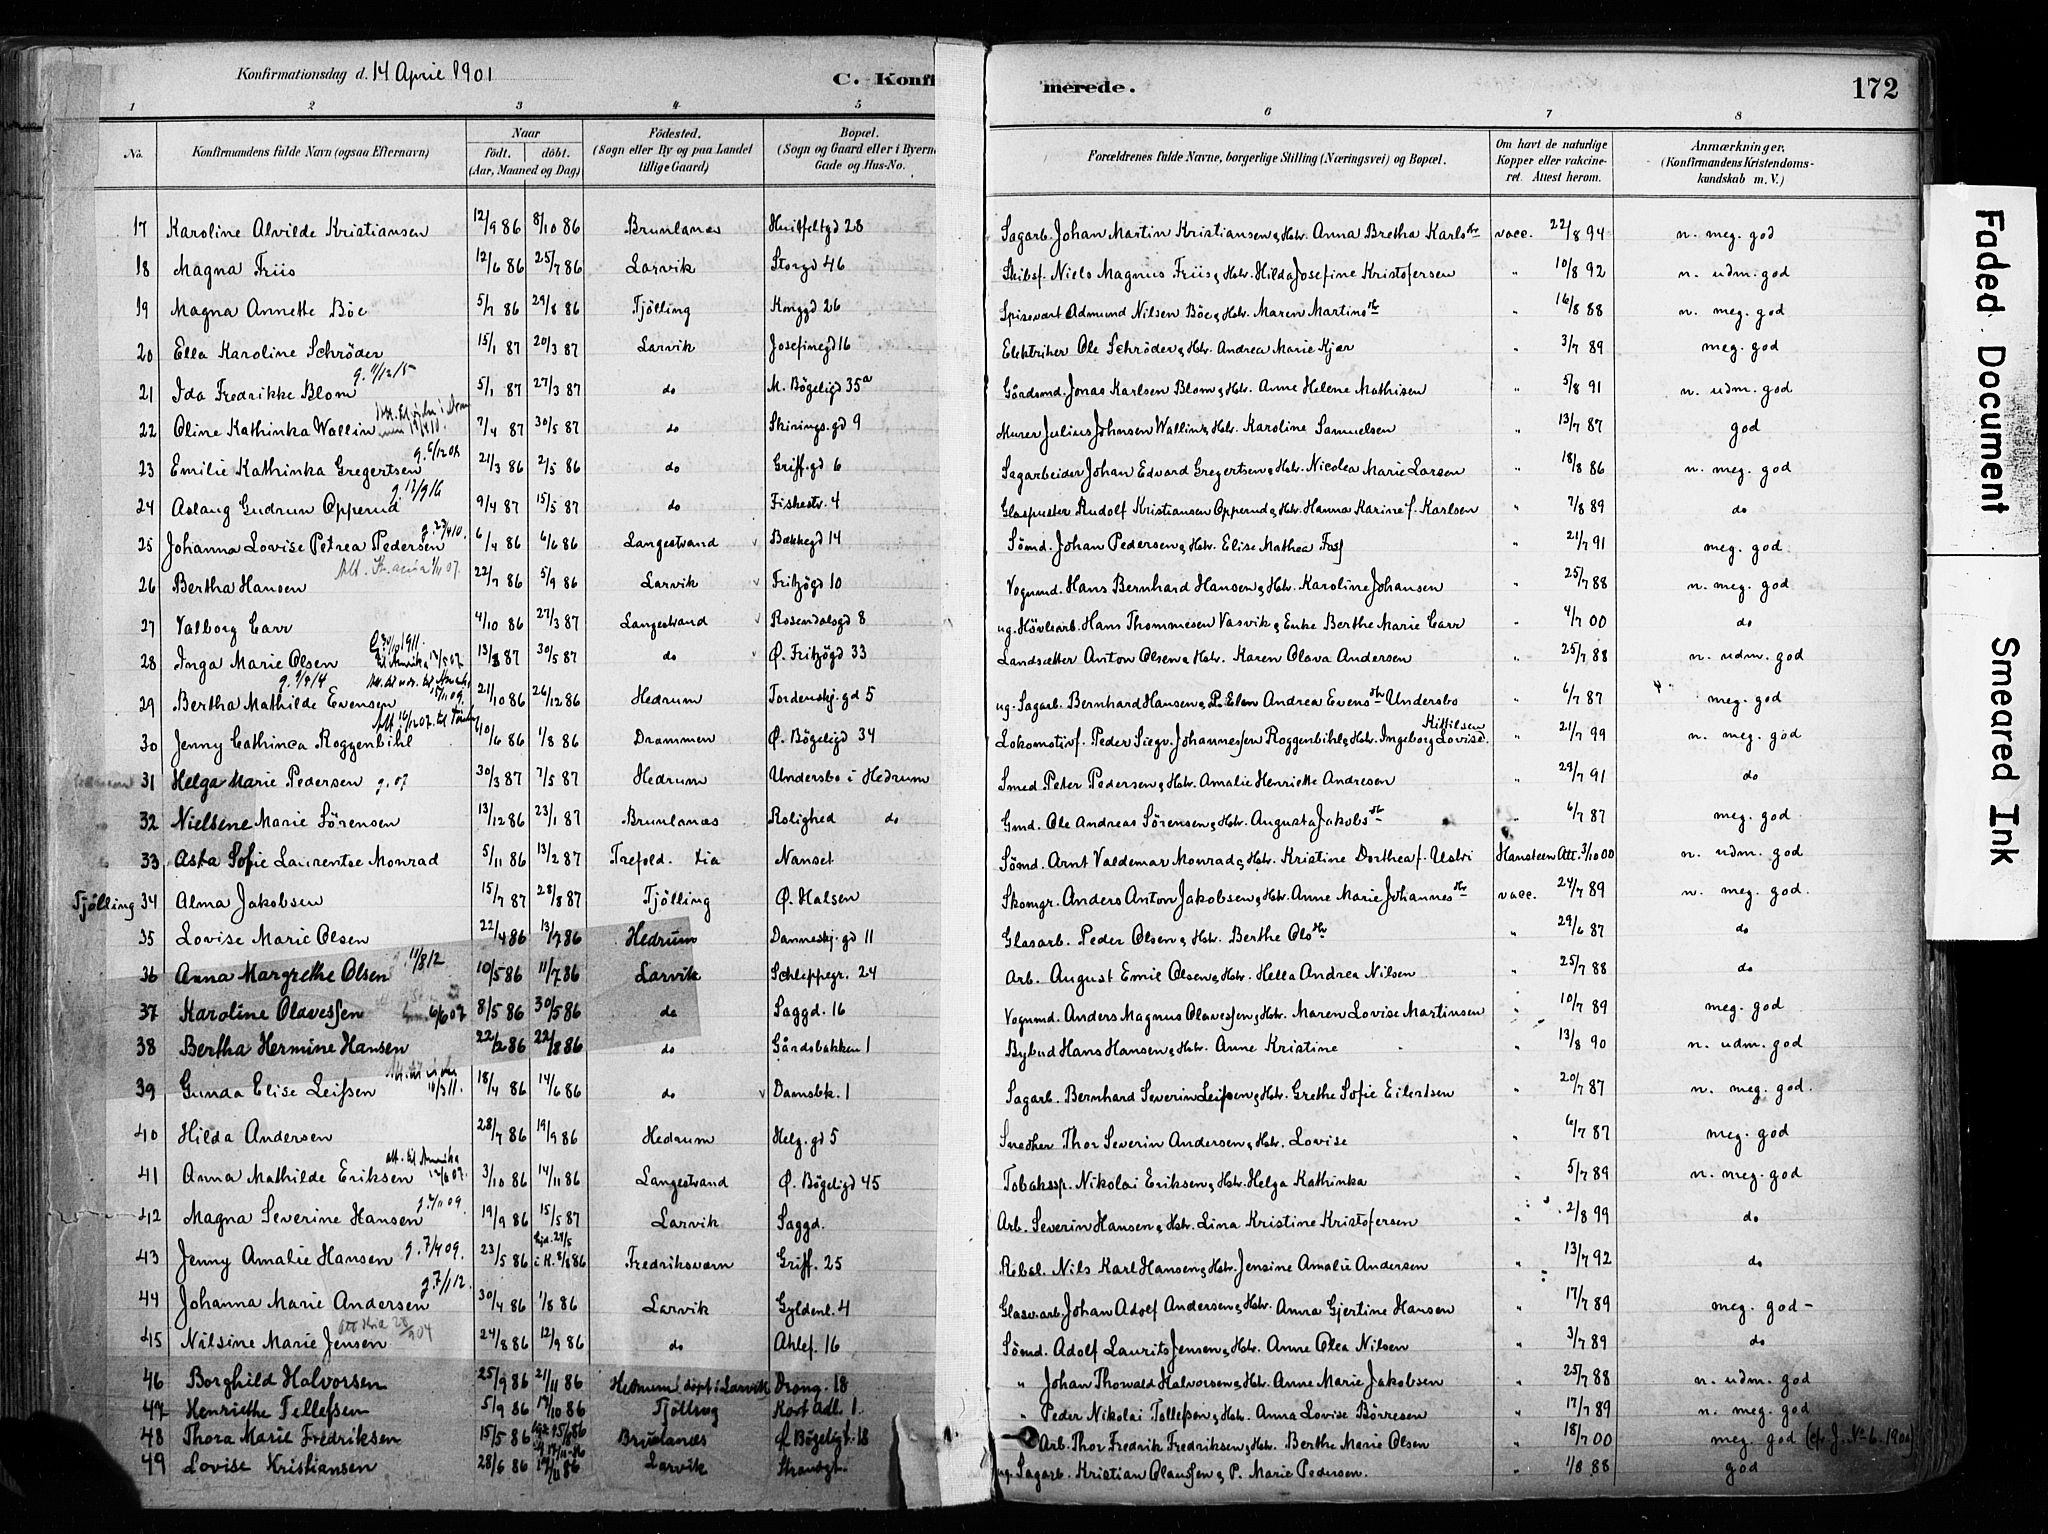 Konfirmationsdag d. 14 April 1901 C. Konfi merede. 172
1 2 3 4 5 6 7 8
No. Konfirmandens fulde Navn (ogsaa Efternavn) Naar födt. döbt. (Aar, Maaned og Dag) Födested. (Sogn eller By og paa Landet tillige Gaard) Bopæl. (Sogn og Gaard eller i Byerne Gade og Hus-No. Forældrenes fulde Navne, borgerlige Stilling (Næringsvei) og Bopæl. Om havt de naturlige Kopper eller vakcineret. Attest herom. Anmærkninger. (Konfirmandens Kristendomskundskab m. V.)
17 Karoline Alvilde Kristiansen 12/9 86 8/10 86 Brunlanæs Huilfeltgd 28 Sagarb. Johan Martin Kristiansen & Hstr. Anna Bretha Karlsdtr vacc. 22/8 94 n. meg. god
18 Magna Friis 12/6 86 25/7 86 Larvik Storgd 46 Skibsf. Niels Magnus Friis & Hstr. Hilda Josefine Kristofersen " 10/8 92 n. udm. god
19 Magna Annette Böe 5/7 86 29/8 86 Tjölling Konggd 26 Spisevært Admund Nilsen Böe & Hstr. Maren Martinsdtr " 16/8 88 n. meg. god
20 Ella Karoline Schröder 15/1 87 20/3 87 Larvik Josefinegd 16 Elektriker Ole Schröder & Hstr. Andrea Marie Kjær " 3/7 89 meg. god
21 Ida Fredrikke Blom g. 11/12 15 5/1 87 27/3 87 do M. Bögeligd 35a Gårdsmd. Jonas Karlsen Blom & Hstr. Anne Helene Mathisen " 5/8 91 n. udm. god
22 Oline Kathinka Wallin 7/4 87 30/5 87 do Skirings.gd 9 Murer Julius Johnsen Wallin & Hstr. Karoline Samuelsen " 13/7 87 god
23 Emilie Kathinka Gregertsen g. 6/12 08 21/3 86 2/5 86 do Griff.gd 6 Sagarbeider Johan Edvard Gregertsen & Hstr. Nicolea Marie Larsen " 18/8 86 n. meg. god
24 Aslaug Gudrun Opperud g. 17/9 16 9/4 87 15/5 87 do Fiskestr. 4 Glaspuster Rudolf Kristiansen Opperud & Hstr. Hanna Karine f. Karlsen " 7/8 89 do
25 Johanna Lovise Petrea Pedersen g. 23/4 10. 6/4 86 6/6 86 Langestrand Bækkegd 14 Sömd. Johan Pedersen & Hstr. Elise Mathea Foss " 21/7 91 meg. god
26 Bertha Hansen 22/7 86 5/9 86 Larvik Fritzögd 10 Vognmd. Hans Bernhard Hansen & Hstr. Karoline Johansen " 25/7 88 n. meg. god
27 Valborg Carr 4/10 86 27/3 87 Langestrand Rosendalsgd 8 ug. Hövlearb. Hans Thommesen Vasvik & Enke Berthe Marie Carr " 4/7 00 do
28 Inga Marie Olsen 13/3 87 30/5 87 do Ø. Fritzögd 33 Landsætter Anton Olsen & Hstr. Karen Olava Andersen " 25/7 88 n. udm. god
29 Bertha Mathilde Evensen 21/10 86 26/12 86 Hedrum Tordenskj.gd 5 ug. Sagarb. Bernhard Hansen & P. Elen Andrea Evensdtr Undersbo " 6/7 87 meg. god
30 Jenny Cathinca Roggenbihl 10/6 86 1/8 86 Drammen Ø. Bögeligd 34 Lokomotivf. Peder Siegv. Johannessen Roggenbihl & Hstr. Ingeborg Lovise Kittilsen. " 21/7 99 n. meg. god
31 Helga Marie Pedersen g. 07 30/3 87 7/5 87 Hedrum Undersbo i Hedrum Smed Peter Pedersen & Hstr. Amalie Henriette Andresen " 23/7 91 do
32 Nielsene Marie Sörensen 13/12 86 23/1 87 Brunlanæs Rolighed do Gmd. Ole Andreas Sörensen & Hstr. Augusta Jakobsdtr " 6/7 87 meg. god
33 Asta Sofie Laurentse Monrad 5/11 86 13/2 87 Trefold. Xia Nanset Sömd. Arnt Valdemar Monrad & Hstr. Kristine Dorthea f. Ustvi Hansteen Att. 3/10 00 n. udm. god
Tjölling 34 Alma Jakobsen 15/7 87 28/8 87 Tjölling Ø. Halsen Skomgr. Anders Anton Jakobsen & Hstr. Anne Marie Johannesdtr vacc. 24/7 89 n. meg. god.
35 Lovise Marie Olsen 22/4 86 13/7 86 Hedrum Danneskj.gd 11 Glasarb. Peder Olsen & Hstr. Berthe Olsdtr " 29/6 87 do
36 Anna Margrethe Olsen 11/8 12 10/5 86 11/7 86 Larvik Schleppegr. 24 Arb. August Emil Olsen & Hstr. Hella Andrea Nilsen " 25/7 88 do
37 Karoline Olavessen 6/6 07 8/5 86 30/5 86 do Saggd. 16 Vognmd. Anders Magnus Olavessen & Hstr. Maren Lovise Martinsen " 10/7 89 meg. god
38 Bertha Hermine Hansen 22/2 86 22/8 86 do Gårdsbakken 1 Bybud Hans Hansen & Hstr. Anne Kristine " 13/8 90 n. udm. god
39 Gunda Elise Leissen 10/3 11. 18/4 86 14/6 86 do Damsbk. 1 Sagarb. Bernhard Severin Leissen & Hstr. Grethe Sofie Eilertsen " 20/7 87 n. meg. god.
40 Hilda Andersen 28/7 86 19/9 86 Hedrum Helg.gd 5 Snedker Thor Severin Andersen & Hstr. Lovise " 6/7 87 meg. god
41 Anna Mathilde Eriksen att. til Amerika 12/6 07. 3/10 86 14/11 86 Langestrand Ø. Bögeligd 45 Tobakssp. Nikolai Eriksen & Hstr. Helga Kathinka " 5/7 89 n. meg. god
42 Magna Severine Hansen 19/9 86 15/5 87 Larvik Saggd. Arb. Severin Hansen & Hstr. Lina Kristine Kristofersen " 2/8 99 do
43 Jenny Amalie Hansen g. 7/4 09. 23/5 86 i K. 8/8 86 Fredriksværn Griff. 25 Rebsl. Nils Karl Hansen & Hstr. Jensine Amalie Andersen " 13/7 92 do
44 Johanna Marie Andersen g 7/1 12. 30/4 86 1/8 86 Larvik Gyldenl. 4 Glasv.arb. Johan Adolf Andersen & Hstr. Anna Gjertine Hansen " 17/7 89 meg. god
45 Nilsine Marie Jensen 24/8 86 12/9 86 do Ahlef. 16 Sömd. Adolf Laurits Jensen & Hstr. Anne Olea Nilsen " 3/7 89 do
46 Borghild Halvorsen 25/9 86 21/11 86 Hedrum (döpt i Larvik Drong. 18 " Johan Thorvald Halvorsen & Hstr. Anne Marie Jakobsen " 25/7 88 n. udm. god
47 Henriette Tellefsen 5/9 86 17/10 86 Tjölling Kort Adl. 1. " Peder Nikolai Tollefsen & Hstr. Anna Lovise Börresen " 17/7 89 n. meg. god
48 Thora Marie Fredriksen 15/5 86 Brunlanæs Ø Bögeligt. 18 Arb. Thor Fredrik Fredriksen & Hstr. Berthe Marie Olsen " 18/7 00 meg. god (cfr. J. No 6. 1900)
49 Lovise Kristiansen 28/6 86 Larvik Strandgt. ug. Sagarb. Kristian Olaussen & P. Marie Pedersen. " 1/8 88 god
Faded Document Smeared Ink